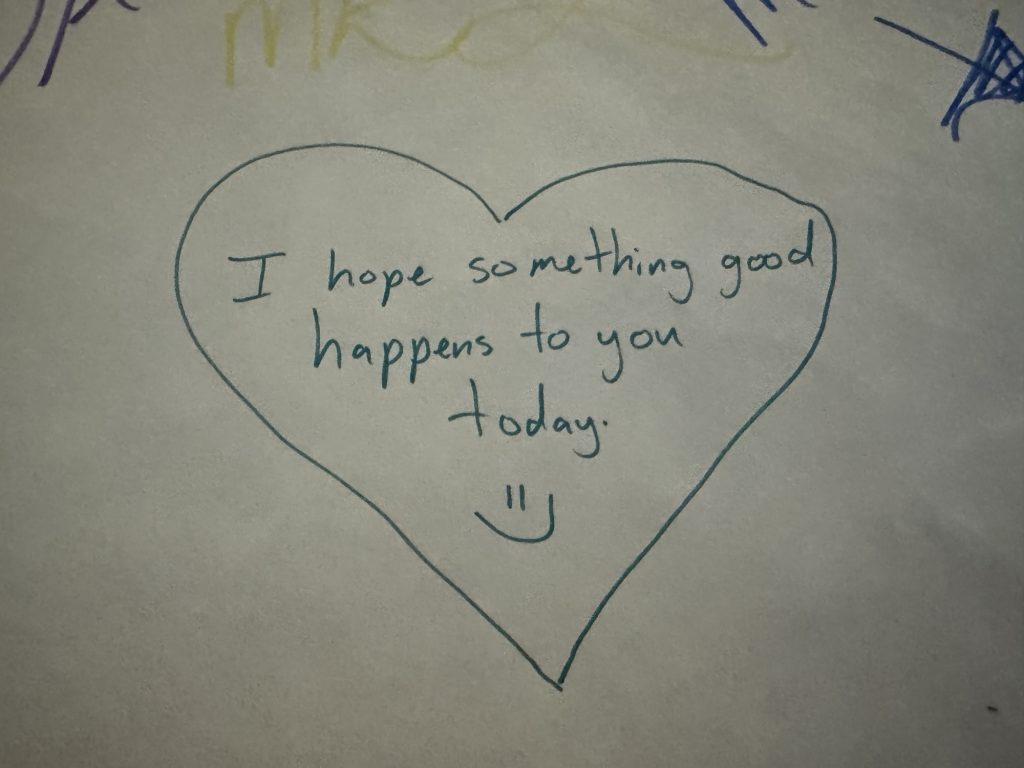 I hope something good
happens to you
today.